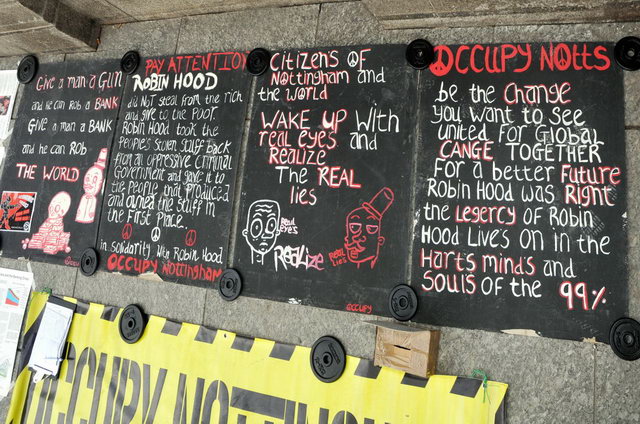 Give a man a GUN
and he can Rob a BANK
Give a man a BANK
and he can ROB
THE WORLD
PAY ATTENTION
ROBIN HOOD
did Not steal from the rich
and give to the Poor.
Robin Hood took the
Peoples Stolen Stuff back
from an oppressive Criminal
Government and gave it to
the People that Produced
and owned the stuff in
the First Place.
in Solidarity With Robin Hood
Occupy Nottingham
Citizens OF
Nottingham and
the World
WAKE UP With
real eyes and
Realize
The REAL
lies
Real
eyes
Realize
Real
lies
Occupy
OCCUPY NOTTS
be the Change
you want to See
united For Global
CANGE TOGETHER
For a better Future
Robin Hood was Right
the legercy of Robin
Hood Lives ON in the
Harts minds and
Souls of the 99%
OCCUPY NOTTINGH